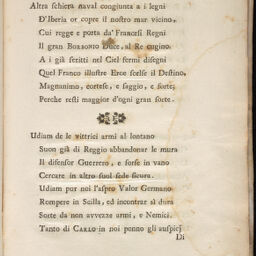 Altra schiera naval congiunta a i legni
D'Iberia or copre il nostro mar vicino,
Cui regge e porta da' Francesi Regni
Il gran BORBONIO Duce, al Re cugino.
A i già scritti nel Ciel fermi disegni
Quel Franco illustre Eroe scelse il Destino,
Magnanimo, cortese, e saggio, e forte;
Perche resti maggior d'ogni gran sorte.
Udiam de le vittrici armi al lontano
Suon già di Reggio abbandonar le mura
Il difensor Guerrero, e forse in vano
Cercare in altro suol sede sicura.
Udiam pur noi l'aspro Valor Germano
Rompere in Scilla, ed incontrar al dura
Sorte da non avvezze armi, e Nemici.
Tanto di CARLO in noi ponno gli auspicj
Di